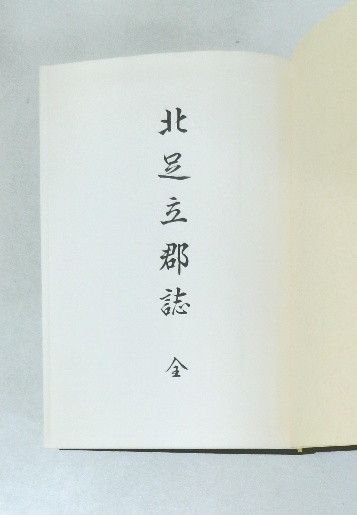 北足立郡誌 全